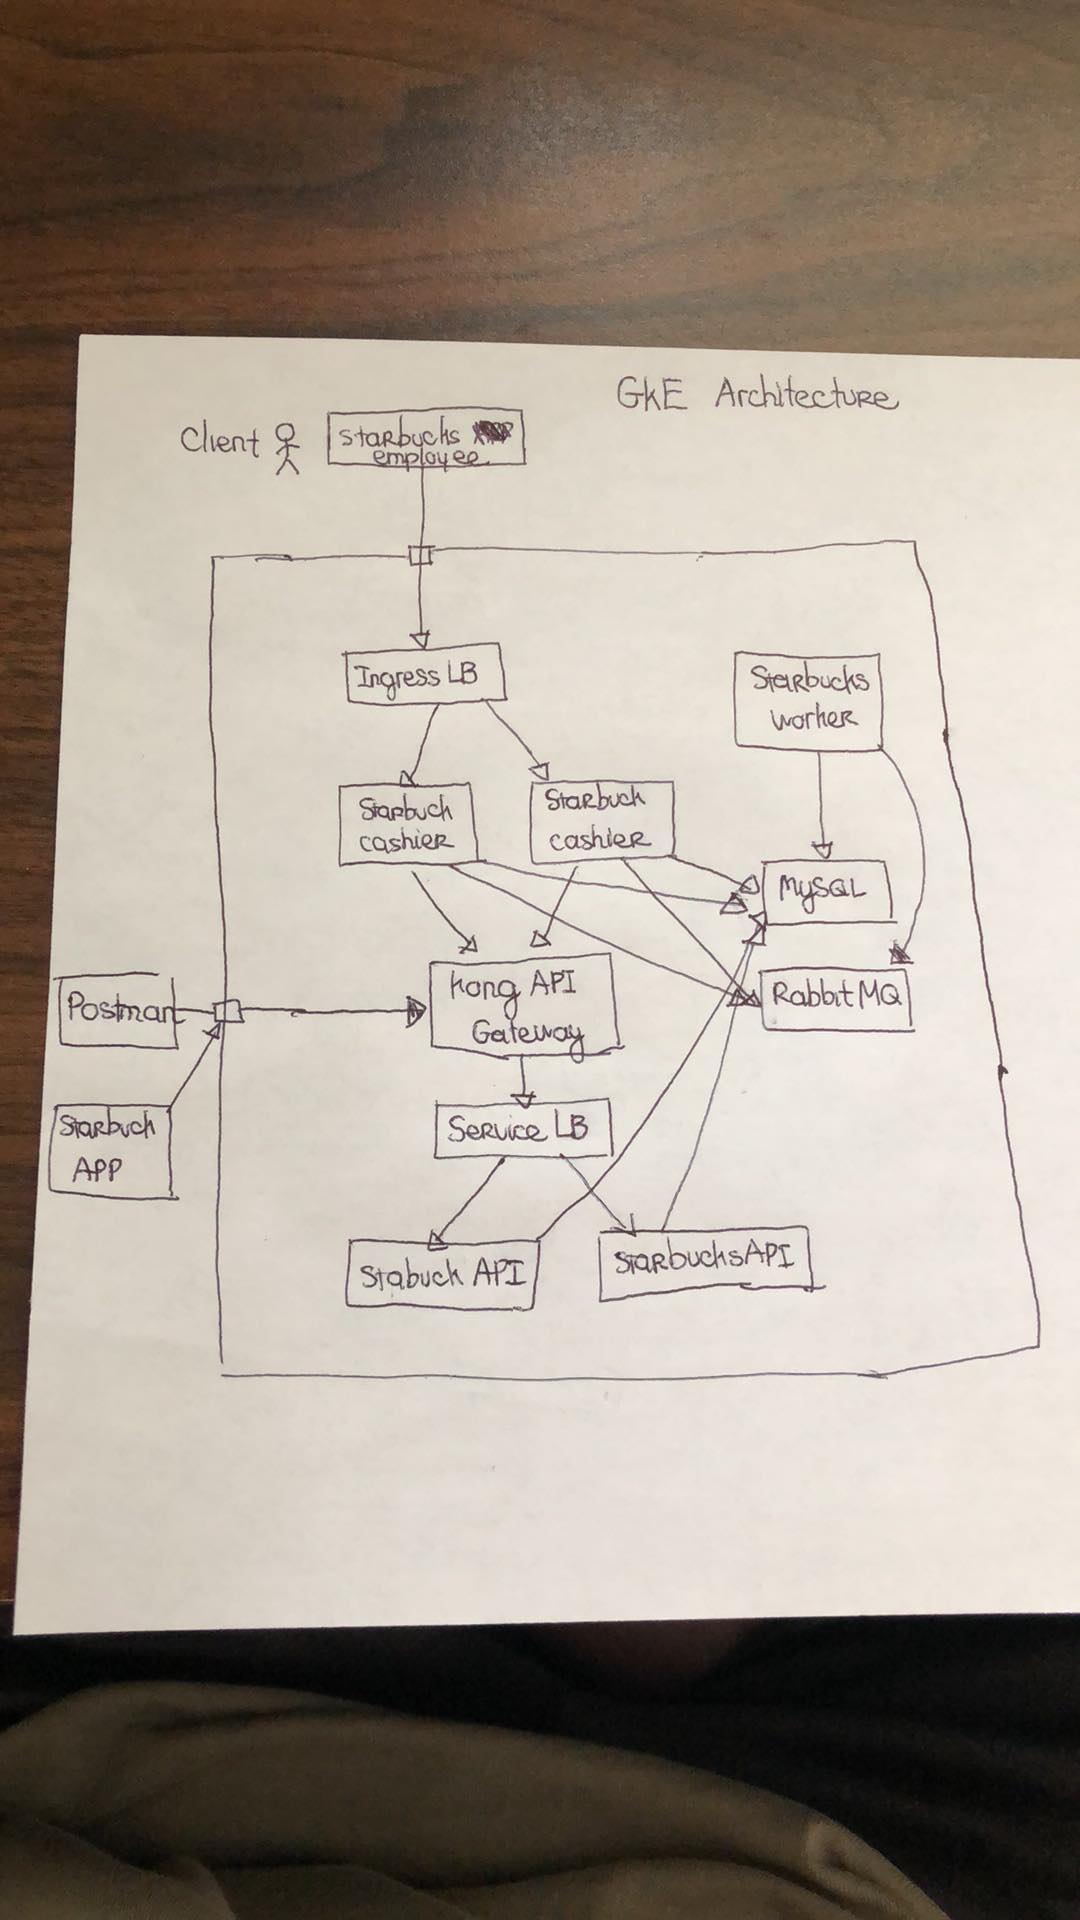 GKE Architecture
Client
Starbucks
employee
Ingress LB
Starbucks
worker
Starbuck
cashier
Starbuck
cashier
MySQL
Kong API
Gateway
RabbitMQ
Postman
Starbuck
APP
Service LB
Stabuck API
Starbucks API